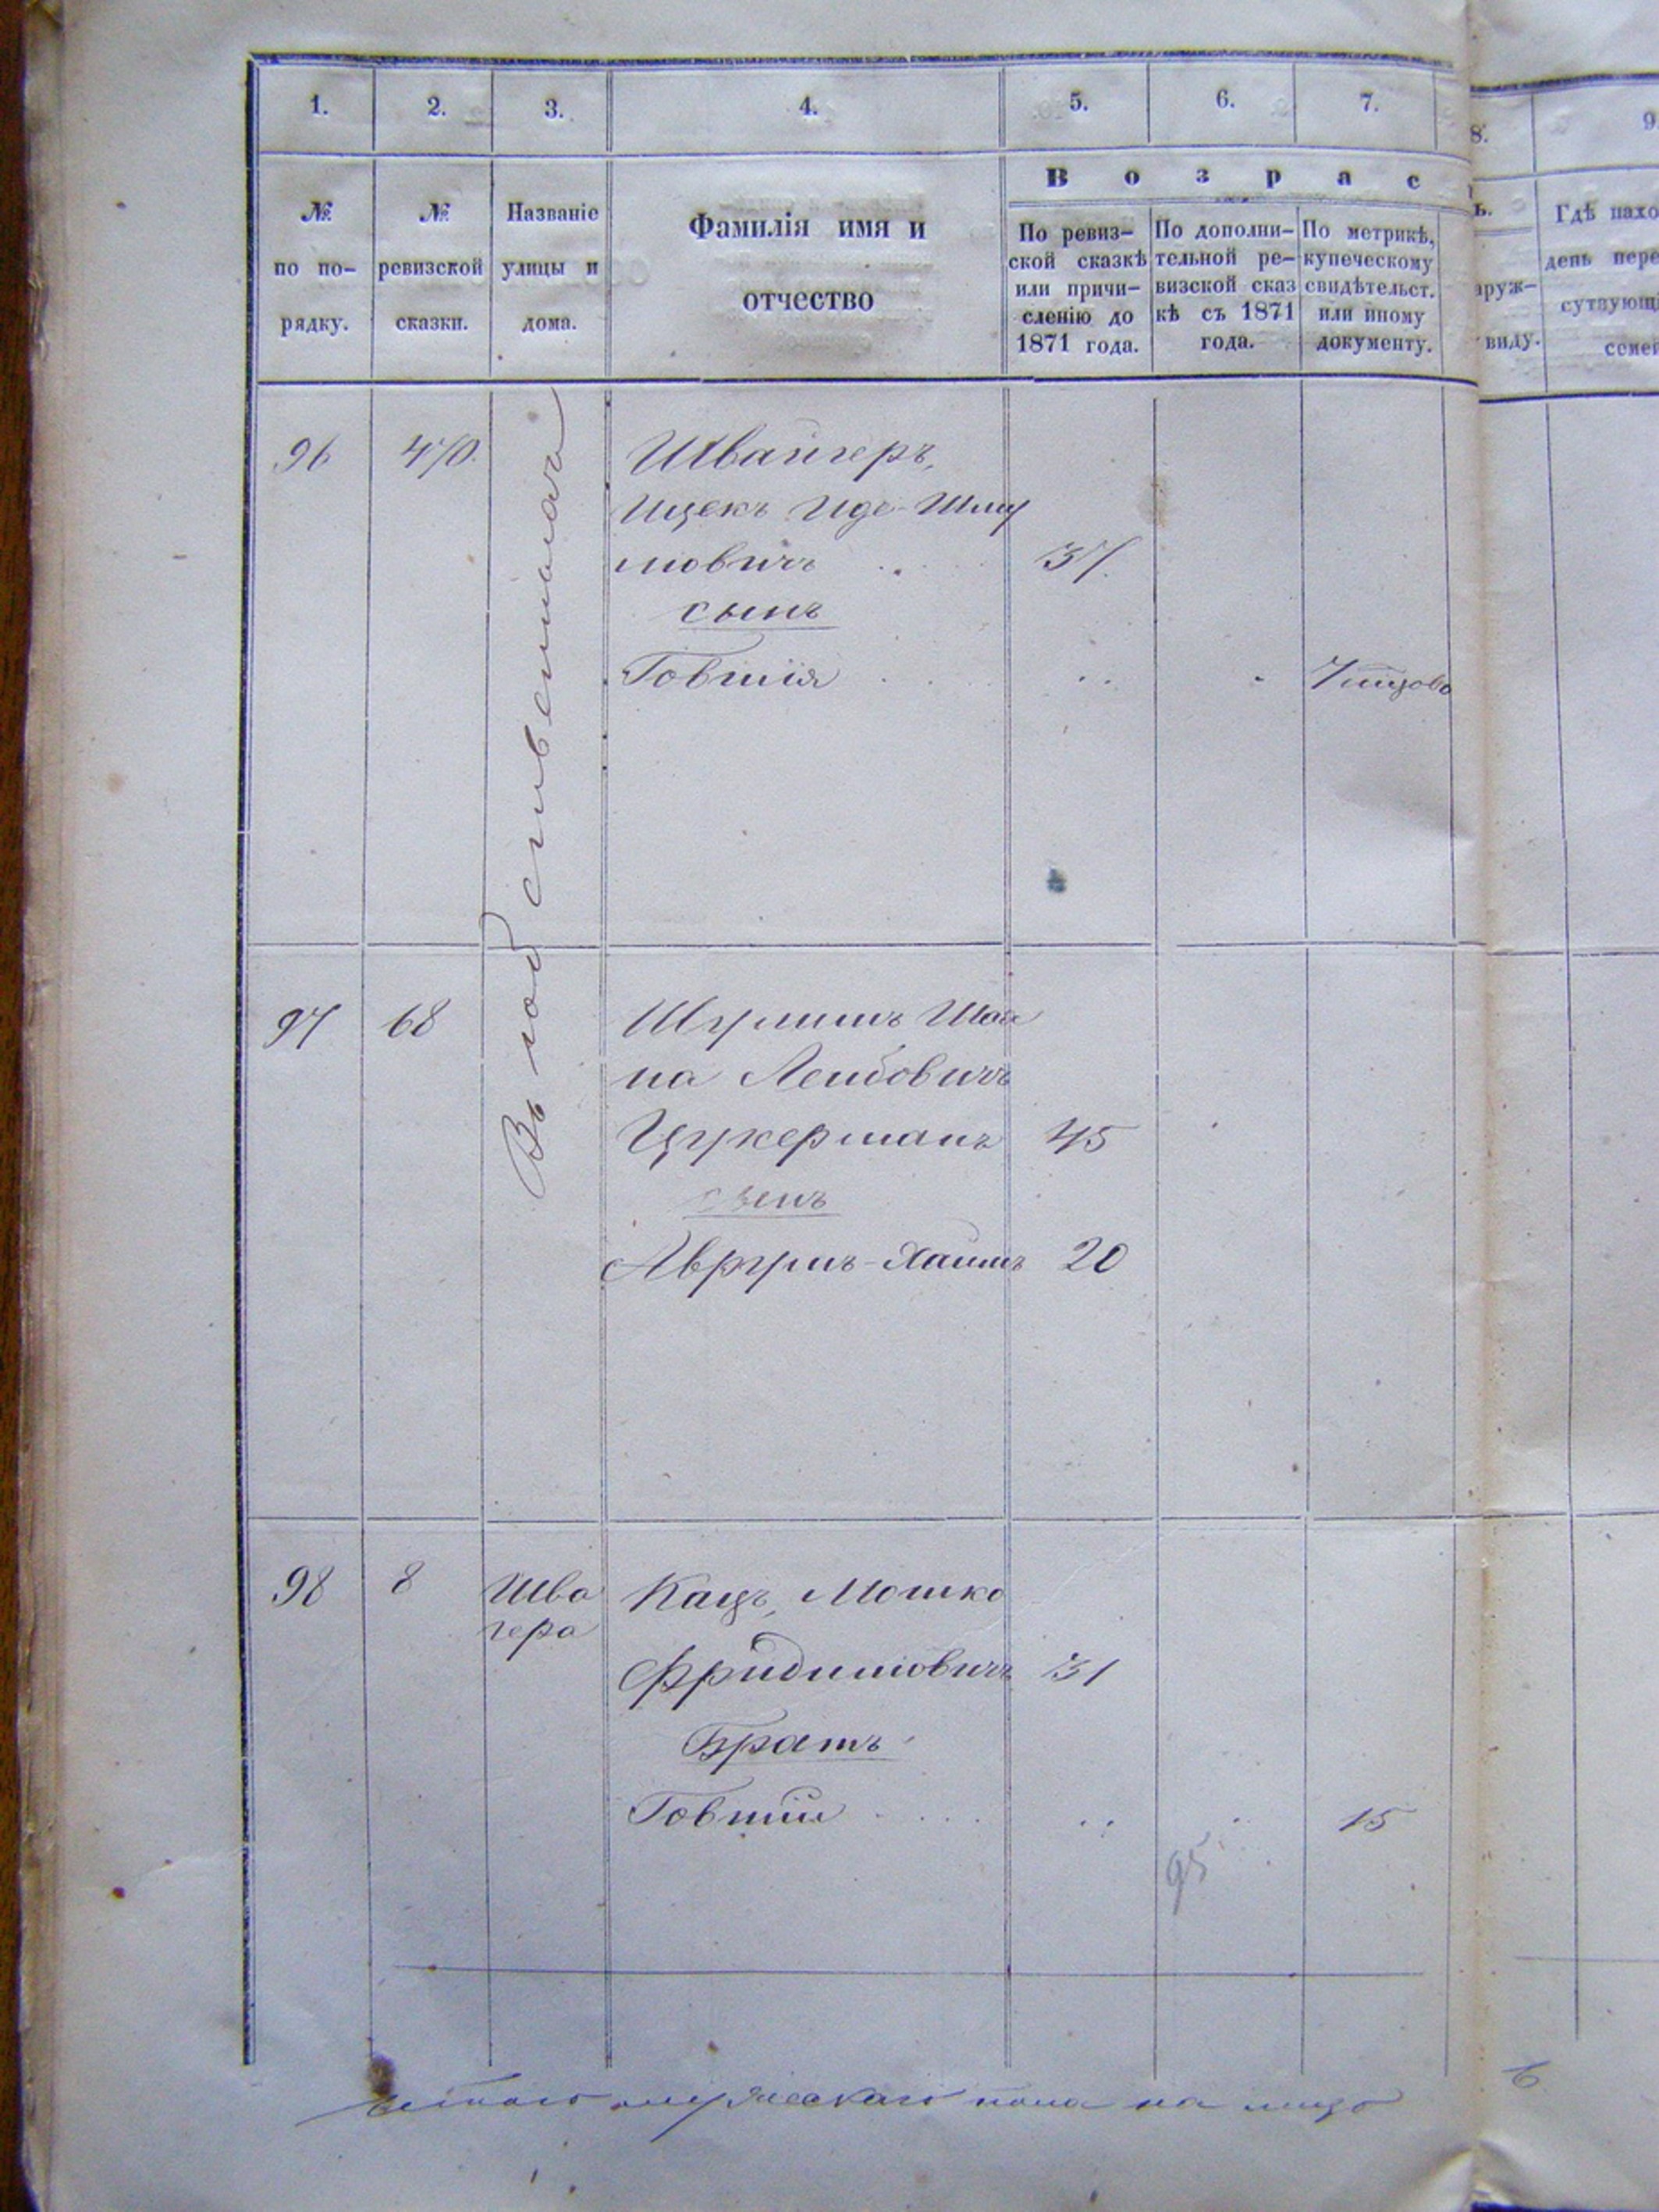 1. 2. 3. 4. 5. 6. 7. 8. 9.
В о з р а с
№ по по-рядку.
№ ревизской сказки.
Названіе улицы и дома.
Фамилія имя и отчество
По ревиз-
ской сказкѣ
или причи-
сленію до
1871 года.
По дополни-
тельной ре-
визской сказ
кѣ съ 1871
года.
По метрикѣ,
купеческому
свидѣтельст.
или иному
документу.
ь.
аруж-
виду.
Гдѣ нахо
день пере
сутвующі
семей
96 470. Швайгеръ,
Ицекъ Иде-Шму
ловичъ 37.
сынъ
Говшія
97 68 Шулимъ Шой
на Лейбовичъ
Цукерманъ 45
сынъ
Аврумъ-Хаимъ 20
Въ собственномъ
98 8 Шва Кацъ, Мошко
гера
Фридиловичъ 31
Братъ
Говшій 15
95
Итого мужескаго пола на лицо 6